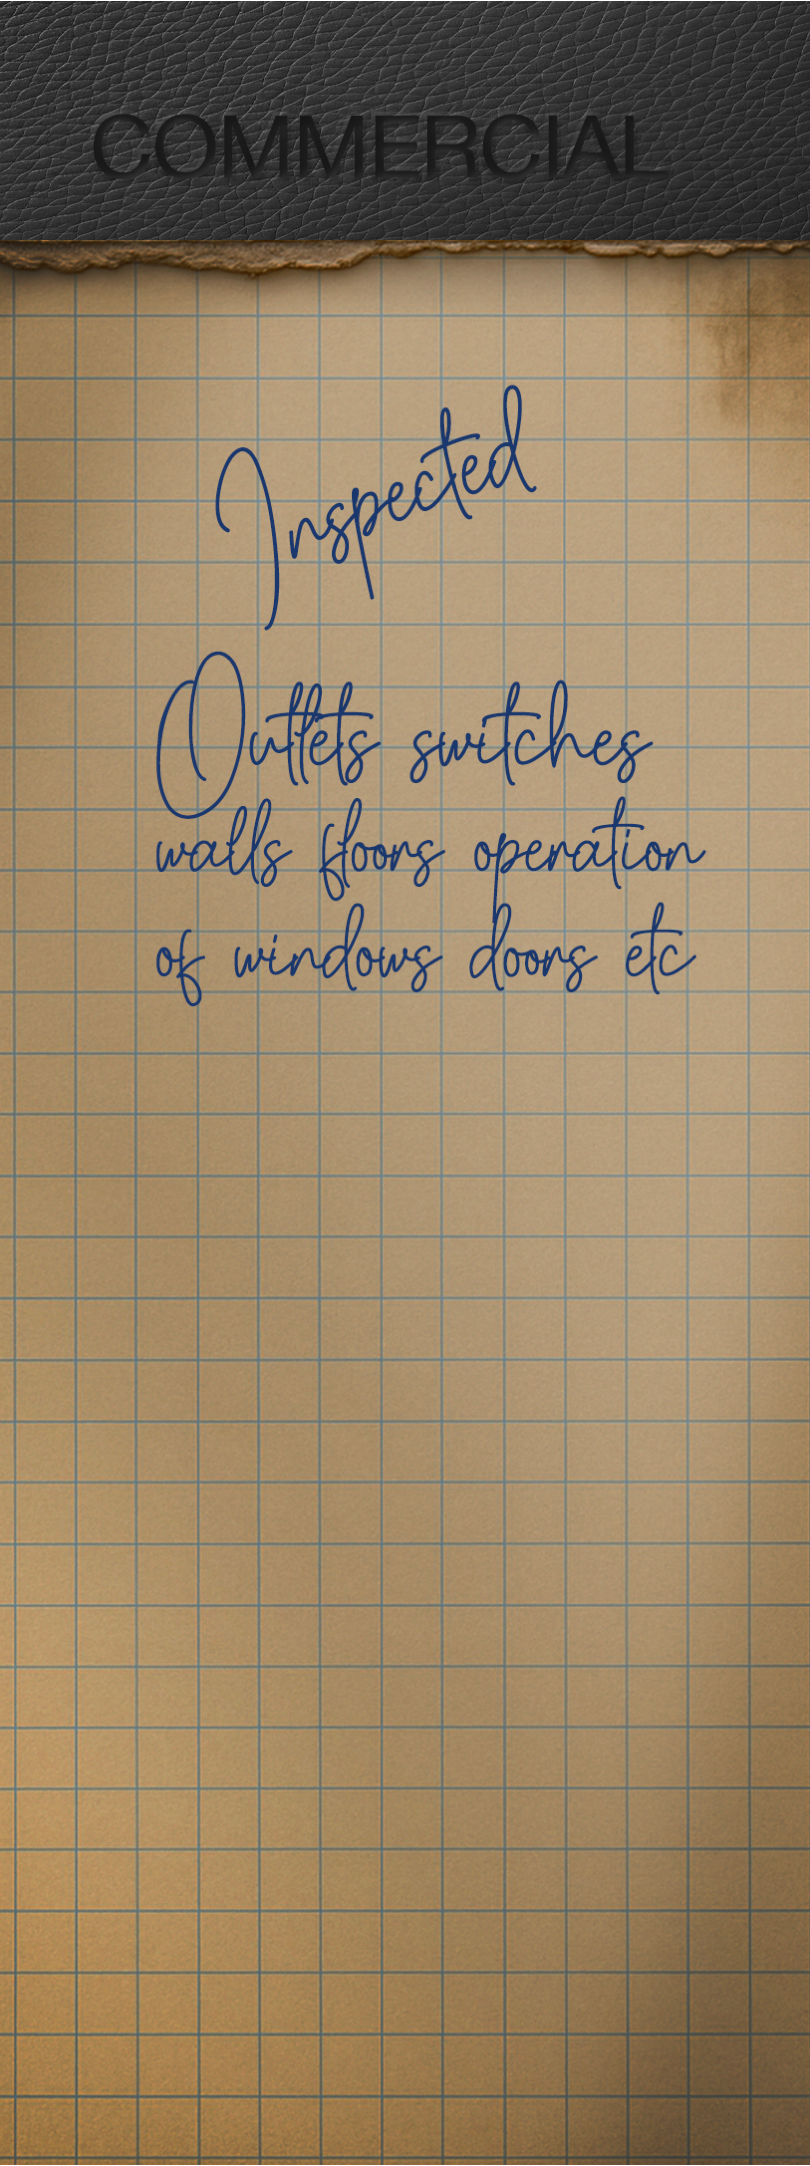 COMMERCIAL
Inspected
Outlets switches
walls floors operation
of windows doors etc